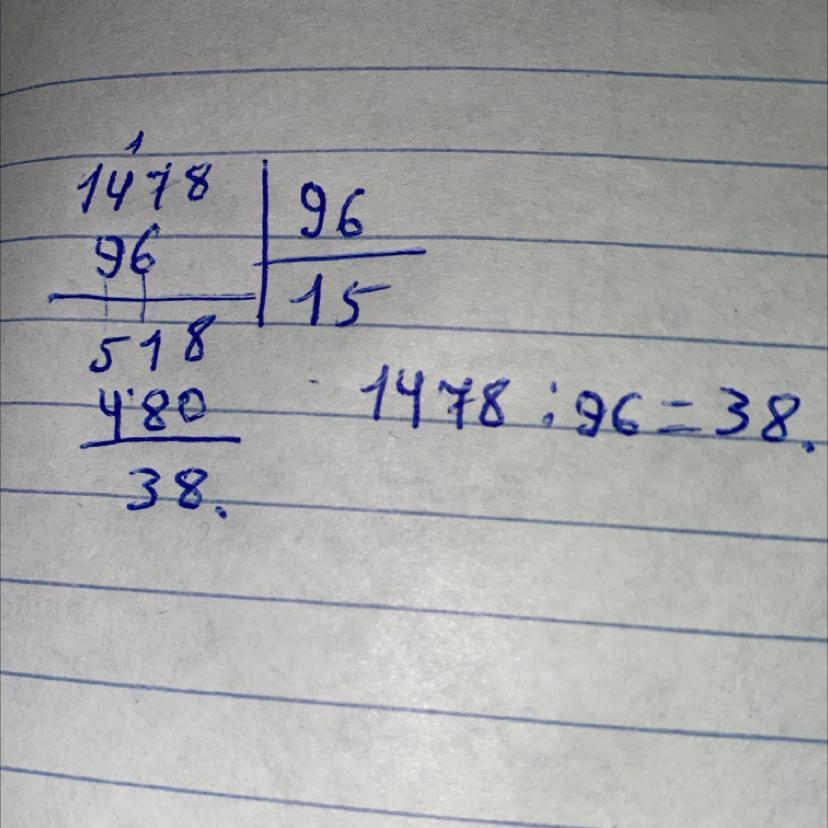 1
1478 96
96 15
518
480
38.
1478 : 96 = 38.